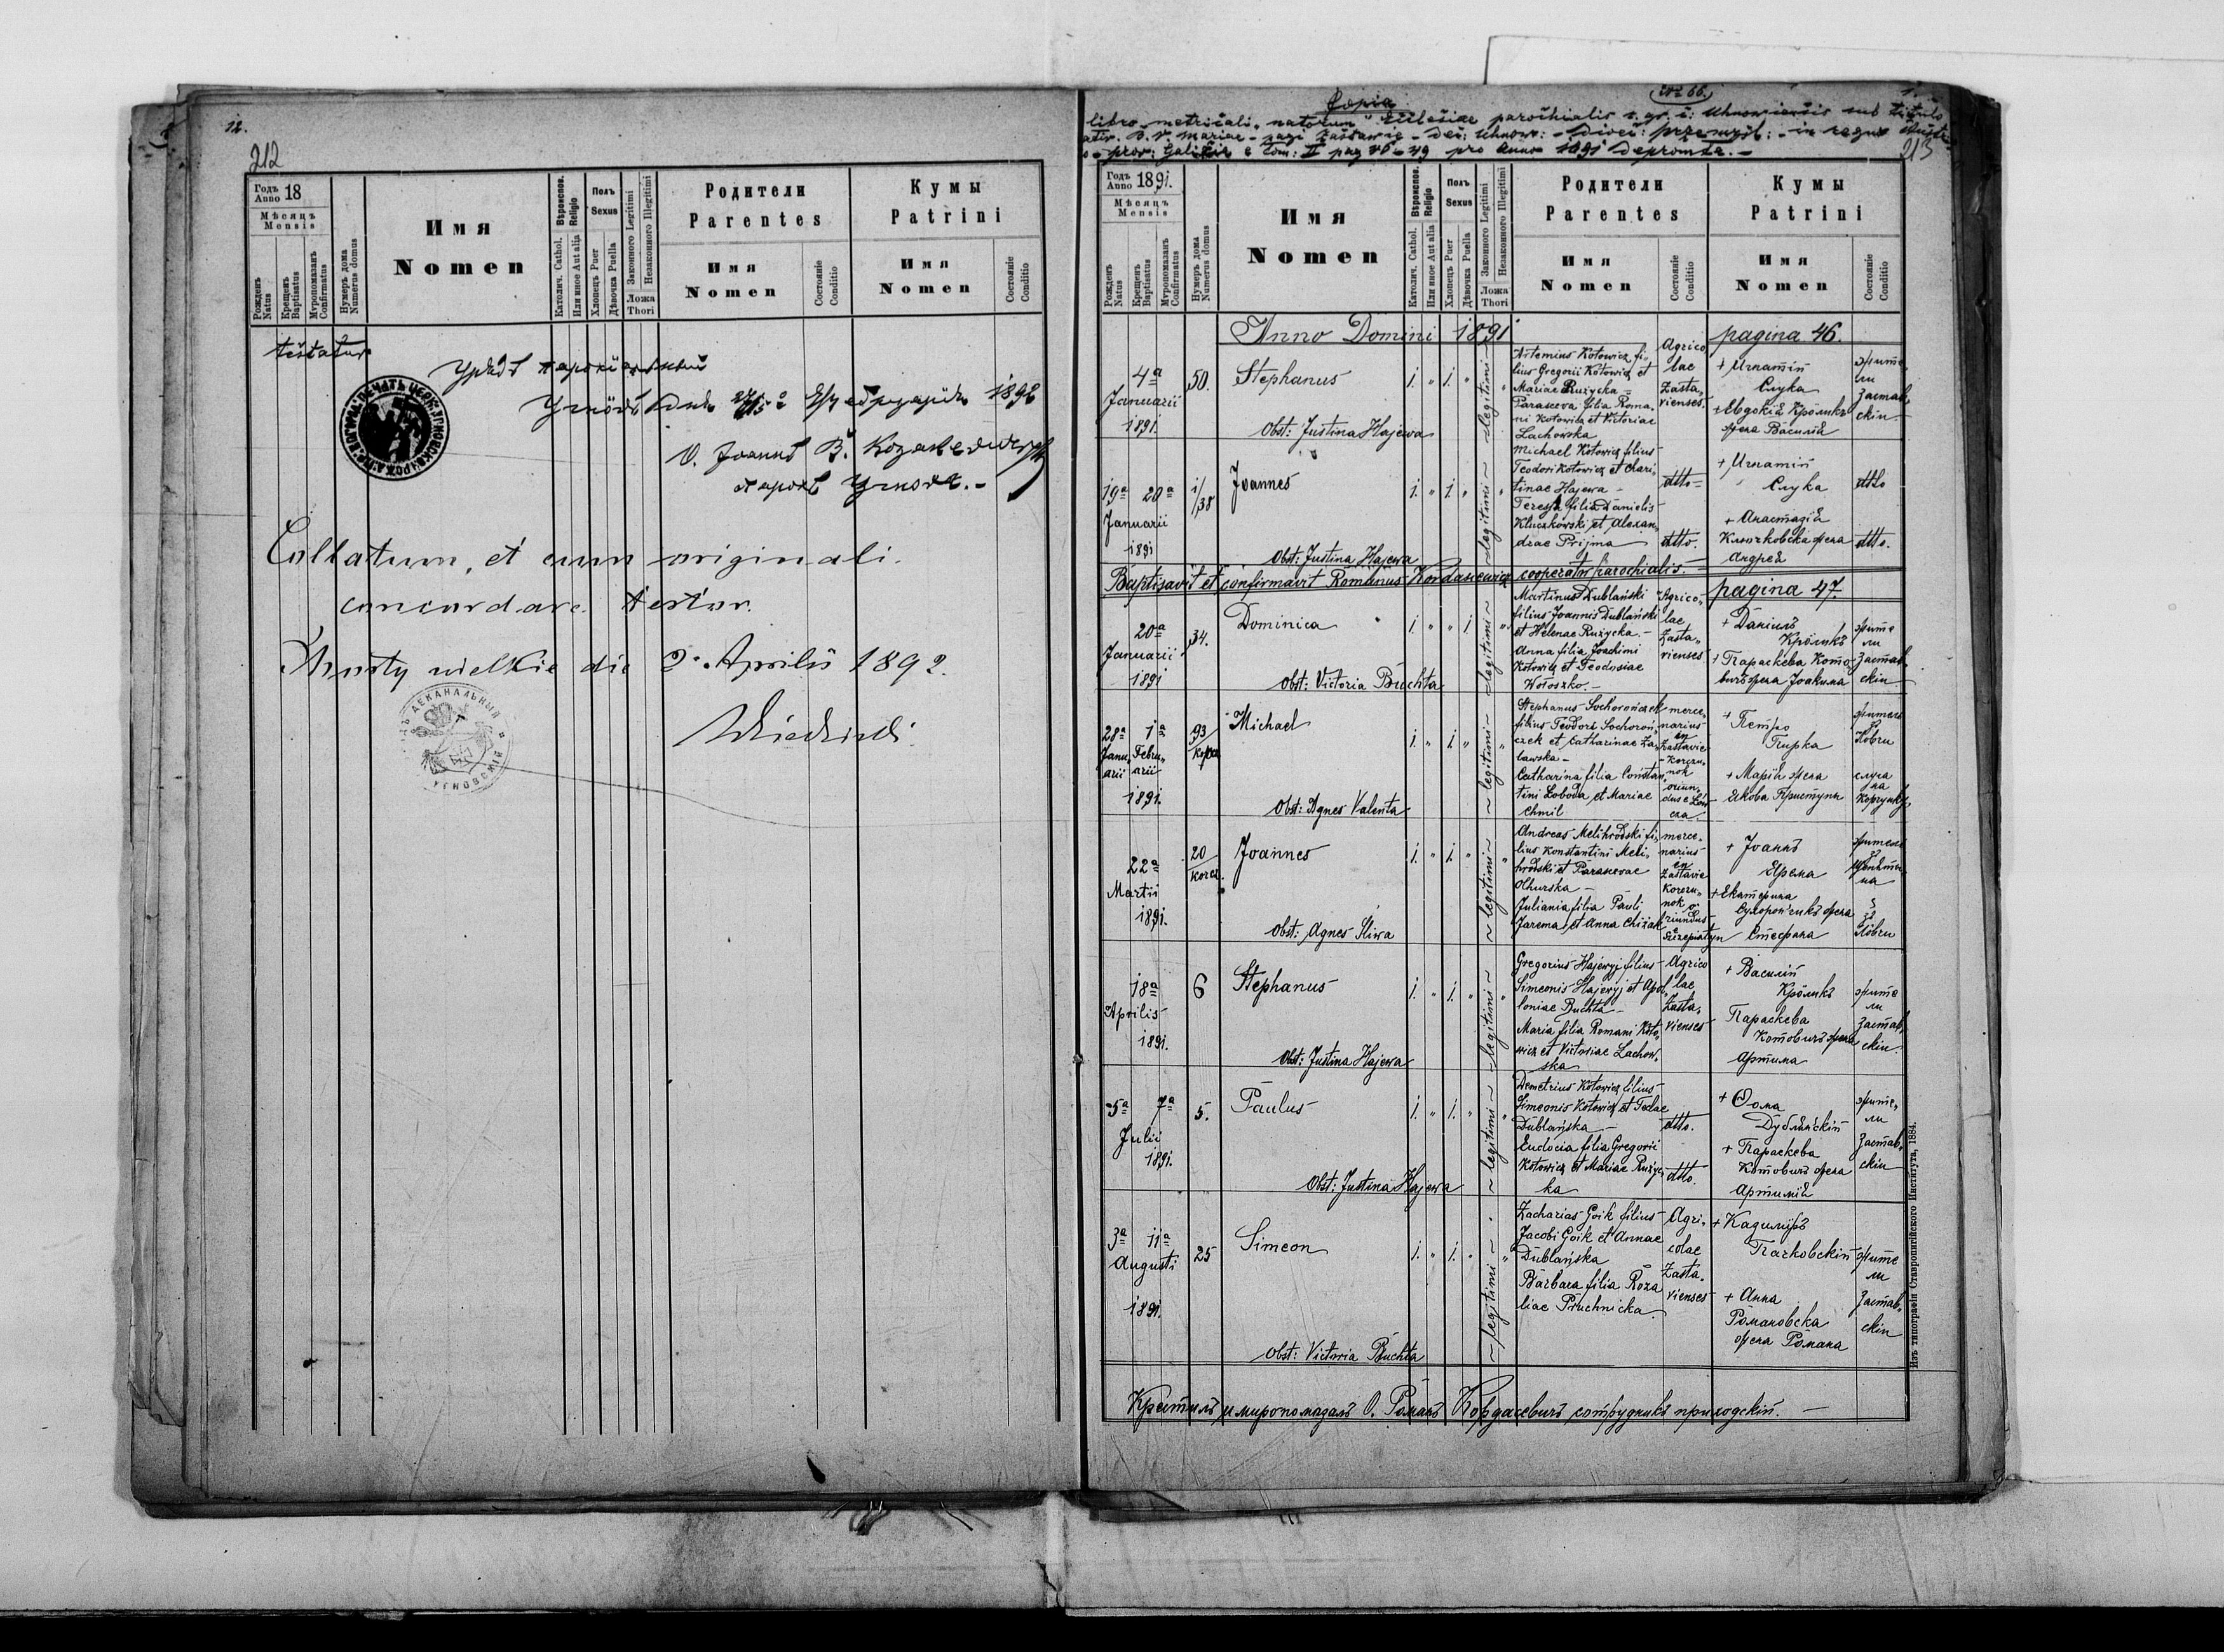 12.
212
Годъ Anno 18
Мѣсяцъ
Mensis
Рожденъ Natus
Крещенъ Baptisatus
Мѵропомазанъ Confirmatus
Нумеръ дома Numerus domus
Имя
Nomen
Вѣроиспов. Religio
Католич. Cathol.
Или иное Aut alia
Полъ
Sexus
Хлопецъ Puer
Дѣвочка Puella
Законного Legitimi
Незаконного Illegitimi
Ложа
Thori
Родители
Parentes
Имя
Nomen
Состояніе
Conditio
Кумы
Patrini
Имя
Nomen
Состояніе
Conditio
testatur
Урядъ парохіальный
Угнôвъ Дня 1892
О. Іоаннъ В.
парохъ Угнова.-
Collatum, et cum originali
concordare testor.
Mosty wielkie die 2. Aprilis 1892.
Copia
№ 66.
1.
libro metricali "natorum" Ecclesiae parochialis r. gr. c. Uhnoviensis sub titulo
B. V. Mariae - pagi Zastawie - Dec: Uhnow: - Dioec: Przemysl: - in regno Austr.
prov: Galicia e Tom: II pag 46-49 pro Anno 1891 depromta.-
213
Годъ Anno 1891.
Мѣсяцъ
Mensis
Рожденъ Natus
Крещенъ Baptisatus
Мѵропомазанъ Confirmatus
Нумеръ дома Numerus domus
Имя
Nomen
Вѣроиспов. Religio
Католич. Cathol.
Или иное Aut alia
Полъ
Sexus
Хлопецъ Puer
Дѣвочка Puella
Законного Legitimi
Незаконного Illegitimi
Ложа
Thori
Родители
Parentes
Имя
Nomen
Состояніе
Conditio
Кумы
Patrini
Имя
Nomen
Состояніе
Conditio
Anno Domini 1891
pagina 46.
4ª
Januarii
1891.
50.
Stephanus
1. " 1. " legitimi "
Obst: Justina Hajewa
Artemius Kotowicz fi-
lius Gregorii Kotowicz et
Mariae Rużycka -
Parasceva filia Roma-
ni Kotowicz et Victoriae
Lachowska
Agrico
lae
Zasta,
vienses.
+ Игнатій
Слука
+ Евдокія Крôликъ
жена Василія
жите
ли
Застав,
скіи
19ª 20ª
Januarii
1891
1/38
Joannes
1. " 1. " legitimi "
Obst: Justina Hajewa
Michael Kotowicz filius
Teodori Kotowicz et Chari-
tinae Hajewa -
Teresa filia Danielis
Kluczkowski et Alexan-
drae Prijma
dtto
dtto.
+ Игнатій
Слука
+ Анастазія
Ключковска жена
Андрея
dtto
dtto.
Baptisavit et confirmavit Romanus Kordasiewicz cooperator parochialis.
pagina 47.
20ª
Januarii
1891
34.
Dominica
1. " " 1. legitimi "
Obst: Victoria Buchta
Martinus Dublański
filius Joannis Dublański
et Helenae Rużycka.-
Anna filia Joachimi
Kotowicz et Teodosiae
Wołoszko.-
Agrico-
lae
Zasta,
vienses
+ Даніилъ
Крôликъ
+ Параскева Кото-
вичъ жена Іоакима
жите
ли
Застав,
скіи
28ª 1ª
Janu, Febru,
arii arii
1891.
93
Michael
1. " 1. " legitimi "
Obst: Agnes Valenta
Stephanus Sochorończek
filius Teodori Sochoroń,
czek et Catharinae Za,
lawska -
Catharina filia Constan,
tini Łoboda et Mariae
Chmil
merce,
narius
in
Zastavie
Korczu,
nok
oriun,
dus e
+ Петро
Пирка
+ Марія жена
Якова Приступы
слуга
на
22ª
Martii
1891.
20
Korcz.
Joannes
1. " 1. " legitimi "
Obst: Agnes Sliwa
Andreas Melihrodski fi,
lius Konstantini Meli,
hrodski et Parascevae
Olhurska -
Juliania filia Pauli
Jarema et Anna Chiżak
merce,
narius
in
Zastavie
Korczu,
nok o-
riundus
e
Szczepiatyn
+ Іоаннъ
Ярема
+ Екатерина
Сухорончикъ жена
Стефана
18ª
Aprilis
1891.
6
Stephanus
1. " 1. " legitimi "
Obst: Justina Hajewa
Gregorius Hajewyj filius
Simeonis Hajewyj et Apol,
loniae Buchta -
Maria filia Romani Koto,
wicz et Victoriae Lachow,
ska
Agrico
lae
Zasta,
vienses
+ Василій
Крôликъ
Параскева
Котовичъ жена
Артима
жите
ли
Застав,
скіи
5ª 7ª
Julii
1891.
5.
Paulus
1. " 1. " legitimi "
Obst: Justina Hajewa
Demetrius Kotowicz filius
Simeonis Kotowicz et Teclae
Dublańska -
Eudocia filia Gregorii
Kotowicz et Mariae Rużyc,
ka
dtto.
dtto.
+ Ѳома
Дублянскій
+ Параскева
Котовичъ жена
Артимія
жите,
ли
Застав,
скіи
3ª 11ª
Augusti
1891.
25
Simeon
1. " 1. " legitimi "
Obst: Victoria Buchta
Zacharias Goik filius
Jacobi Goik et Annae
Dublańska
Barbara filia Roza
liae Pruchnicka
Agri,
colae
Zasta,
vienses
+ Казиміръ
Пачковскій
+ Анна
Романовска
жена Романа
жите
ли
Застав,
скіи
Крестилъ и миропомазалъ О. Романъ Кордасевичъ сотрудникъ приходскій. -
Изъ типографіи Ставропигійского Института, 1884.